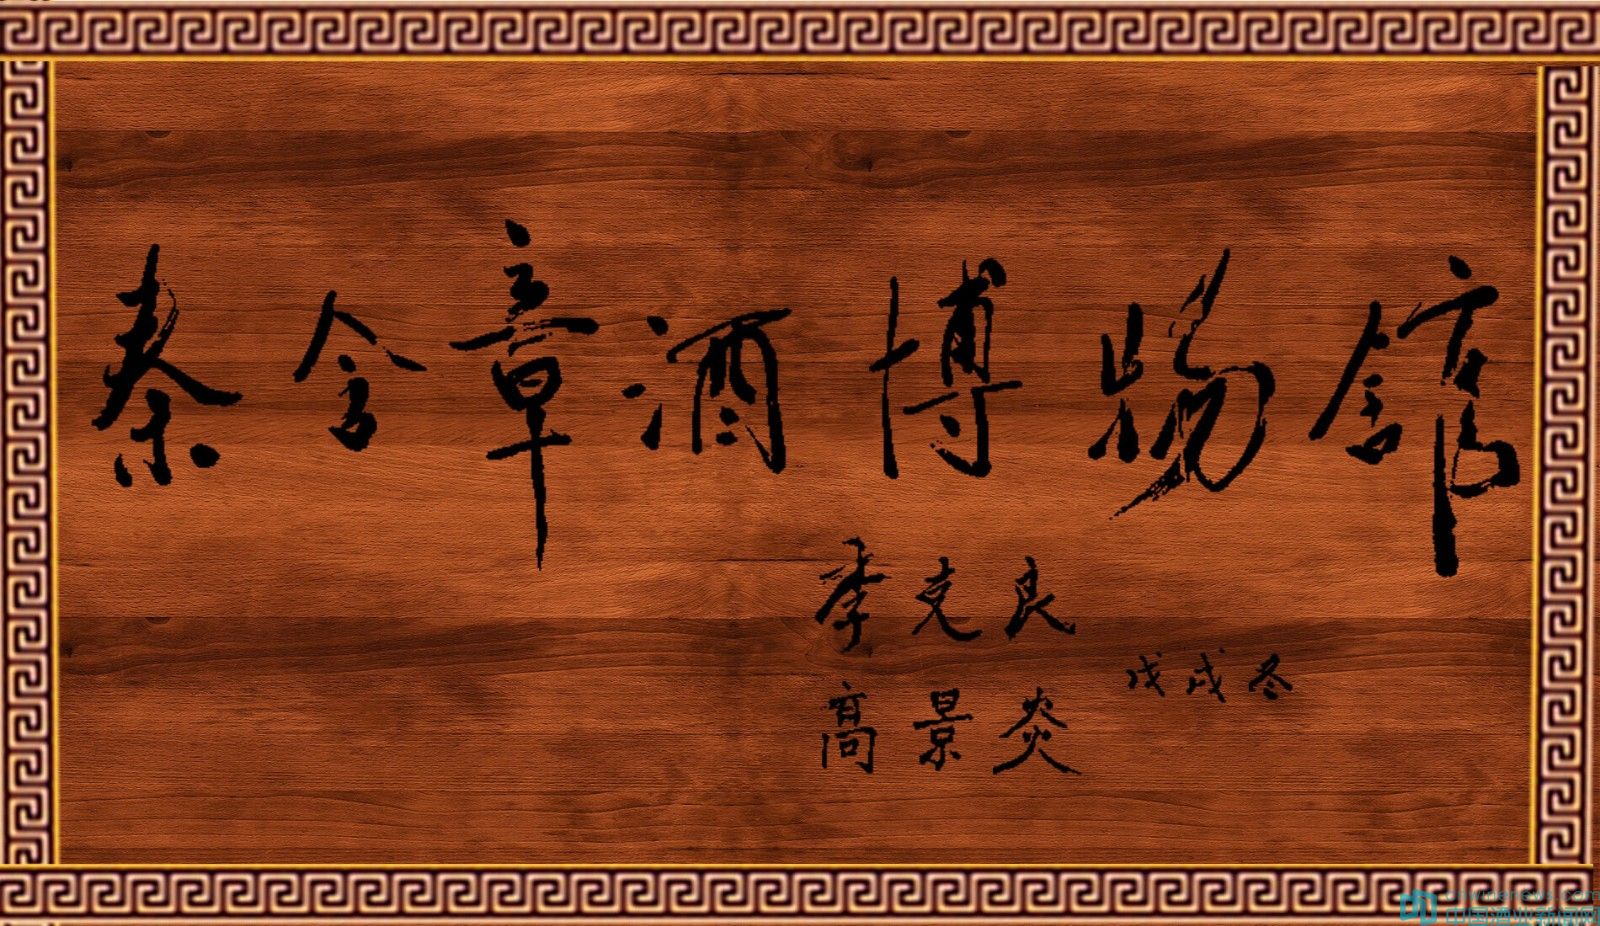 秦含章酒博物館
季克良
戊戌冬
高景炎
cnwinenews.com
中国酒业新闻网